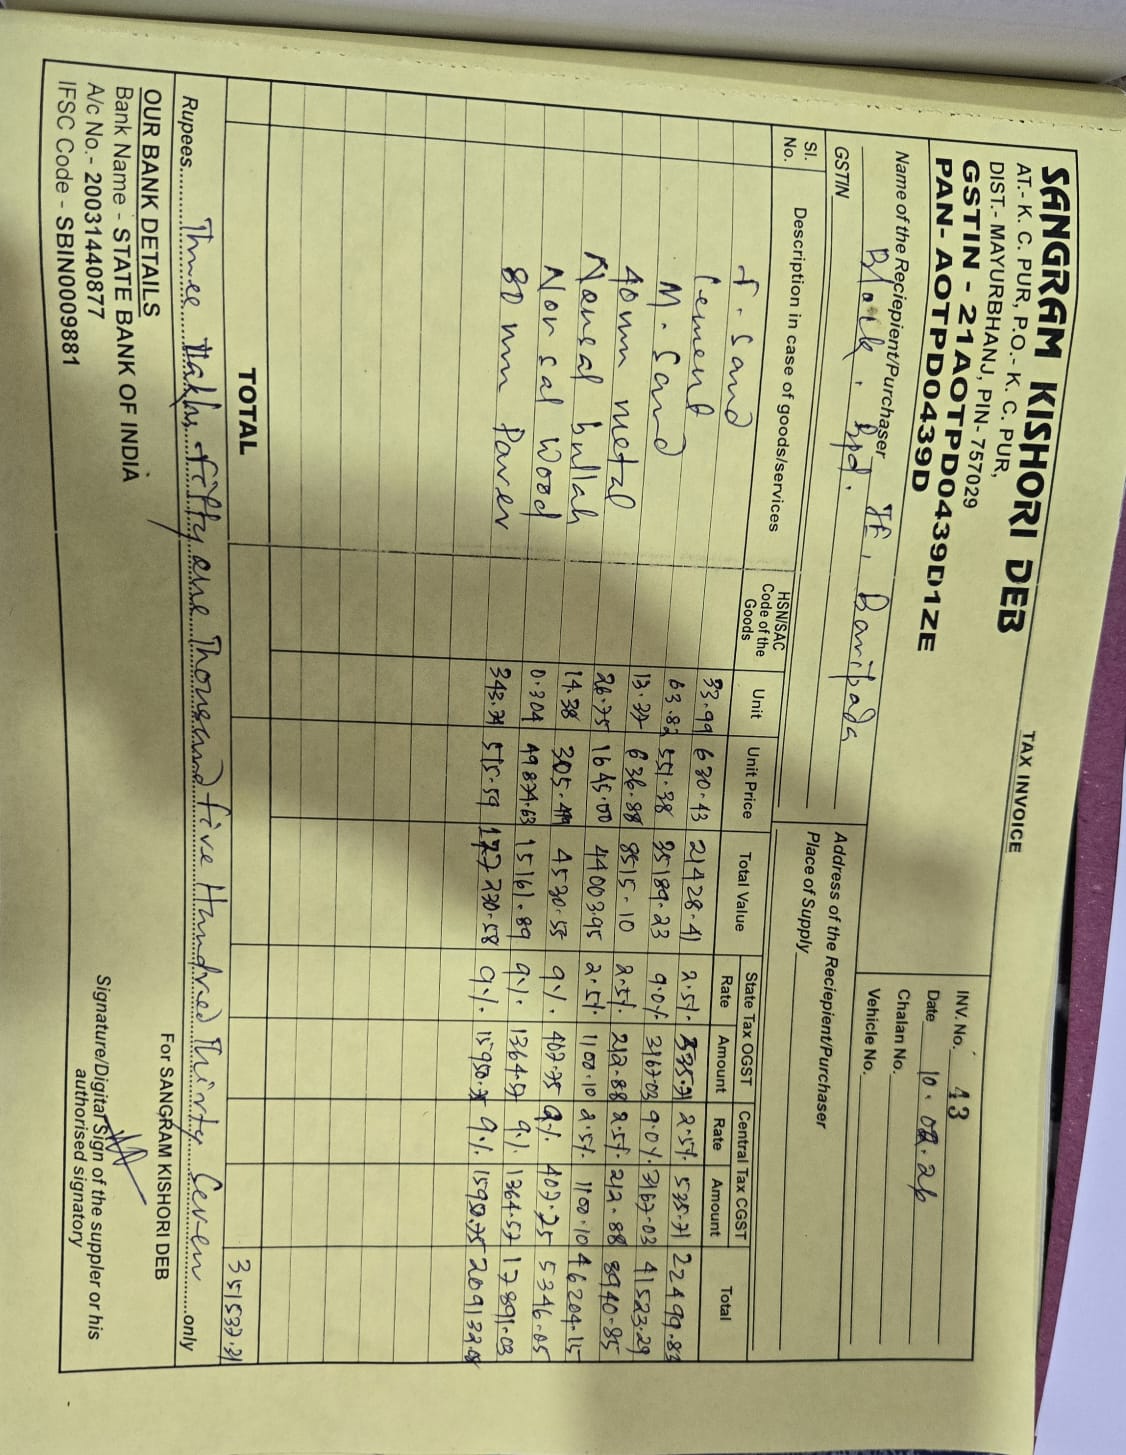 TAX INVOICE
SANGRAM KISHORI DEB
AT.- K. C. PUR, P.O.- K. C. PUR,
DIST.- MAYURBHANJ, PIN-757029
GSTIN - 21AOTPD0439D1ZE
PAN- AOTPD0439D
INV. No. 43
Date 10.02.26
Chalan No.
Vehicle No.
Name of the Reciepient/Purchaser JE, Baripada
Block, Bpd.
GSTIN
Address of the Reciepient/Purchaser
Place of Supply
Sl. No. Description in case of goods/services HSN/SAC Code of the Goods Unit Unit Price Total Value State Tax OGST Rate Amount Central Tax CGST Rate Amount Total
f. Sand 33.99 630.43 21428.41 2.5%. 535.71 2.5%. 535.71 22499.83
Cement 63.82 551.38 35189.23 9.0%. 3167.03 9.0%. 3167.03 41523.29
M. Sand 13.37 636.88 8515.10 2.5%. 212.88 2.5%. 212.88 8940.85
40mm metal 26.75 1645.00 44003.95 2.5%. 1100.10 2.5%. 1100.10 46204.15
bullah 14.38 4530.55 9%. 407.75 9%. 5346.05
Wood 0.304 49874.63 15161.89 9%. 1364.57 9%. 1364.57 17891.03
80 mm Paver 343.74 515.59 177230.58 9%. 9%. 209132.08
TOTAL 351537.31
Rupees Three lakhs fifty one Thousand five Hundred Thirty Seven only
OUR BANK DETAILS
Bank Name - STATE BANK OF INDIA
A/c No.- 20031440877
IFSC Code - SBIN0009881
For SANGRAM KISHORI DEB
Signature/Digital Sign of the suppler or his
authorised signatory